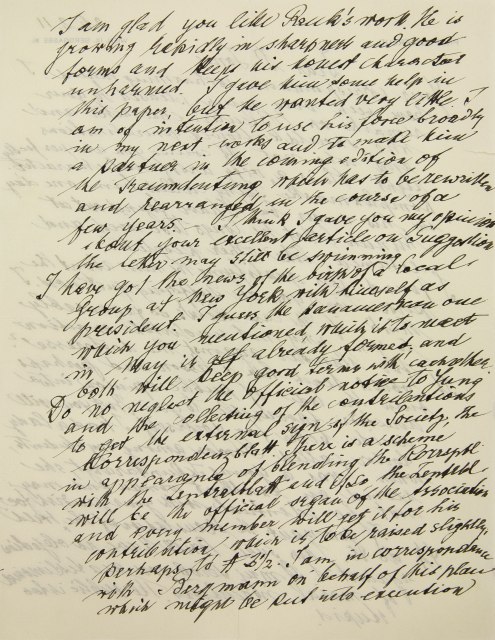 I am glad you like Rank's work. He is
growing rapidly in sharpness and good
forms and keeps his honest character
unharmed. I give him some help in
this paper, but he wanted very little. I
am of intention to use his force broadly
in my next works and to make him
a partner in the coming edition of
the Traumdeutung which has to be rewritten
and rearranged in the course of a
few years. I think I gave you my opinion
about your excellent article on Suggestion
the letter may still be swimming.
I have got the news of the birth of a local
Group at New York with himself as
president. I guess the panamerican one
which you mentioned, which is to meet
in May is not already formed, and
both will keep good terms with each other.
Do no neglect the official notice to Jung
and the collecting of the contributions
to get the external sign of the Society, the
Korrespondenzblatt. There is a scheme
in appearance of blending the Korrespbl
with the Zentralblatt and so the Zentralbl
will be the official organ of the association
and every member will get it for his
contribution, which is to be raised slightly,
perhaps to $ 2½. I am in correspondence
with Bergmann on behalf of this plan
which might be put into execution